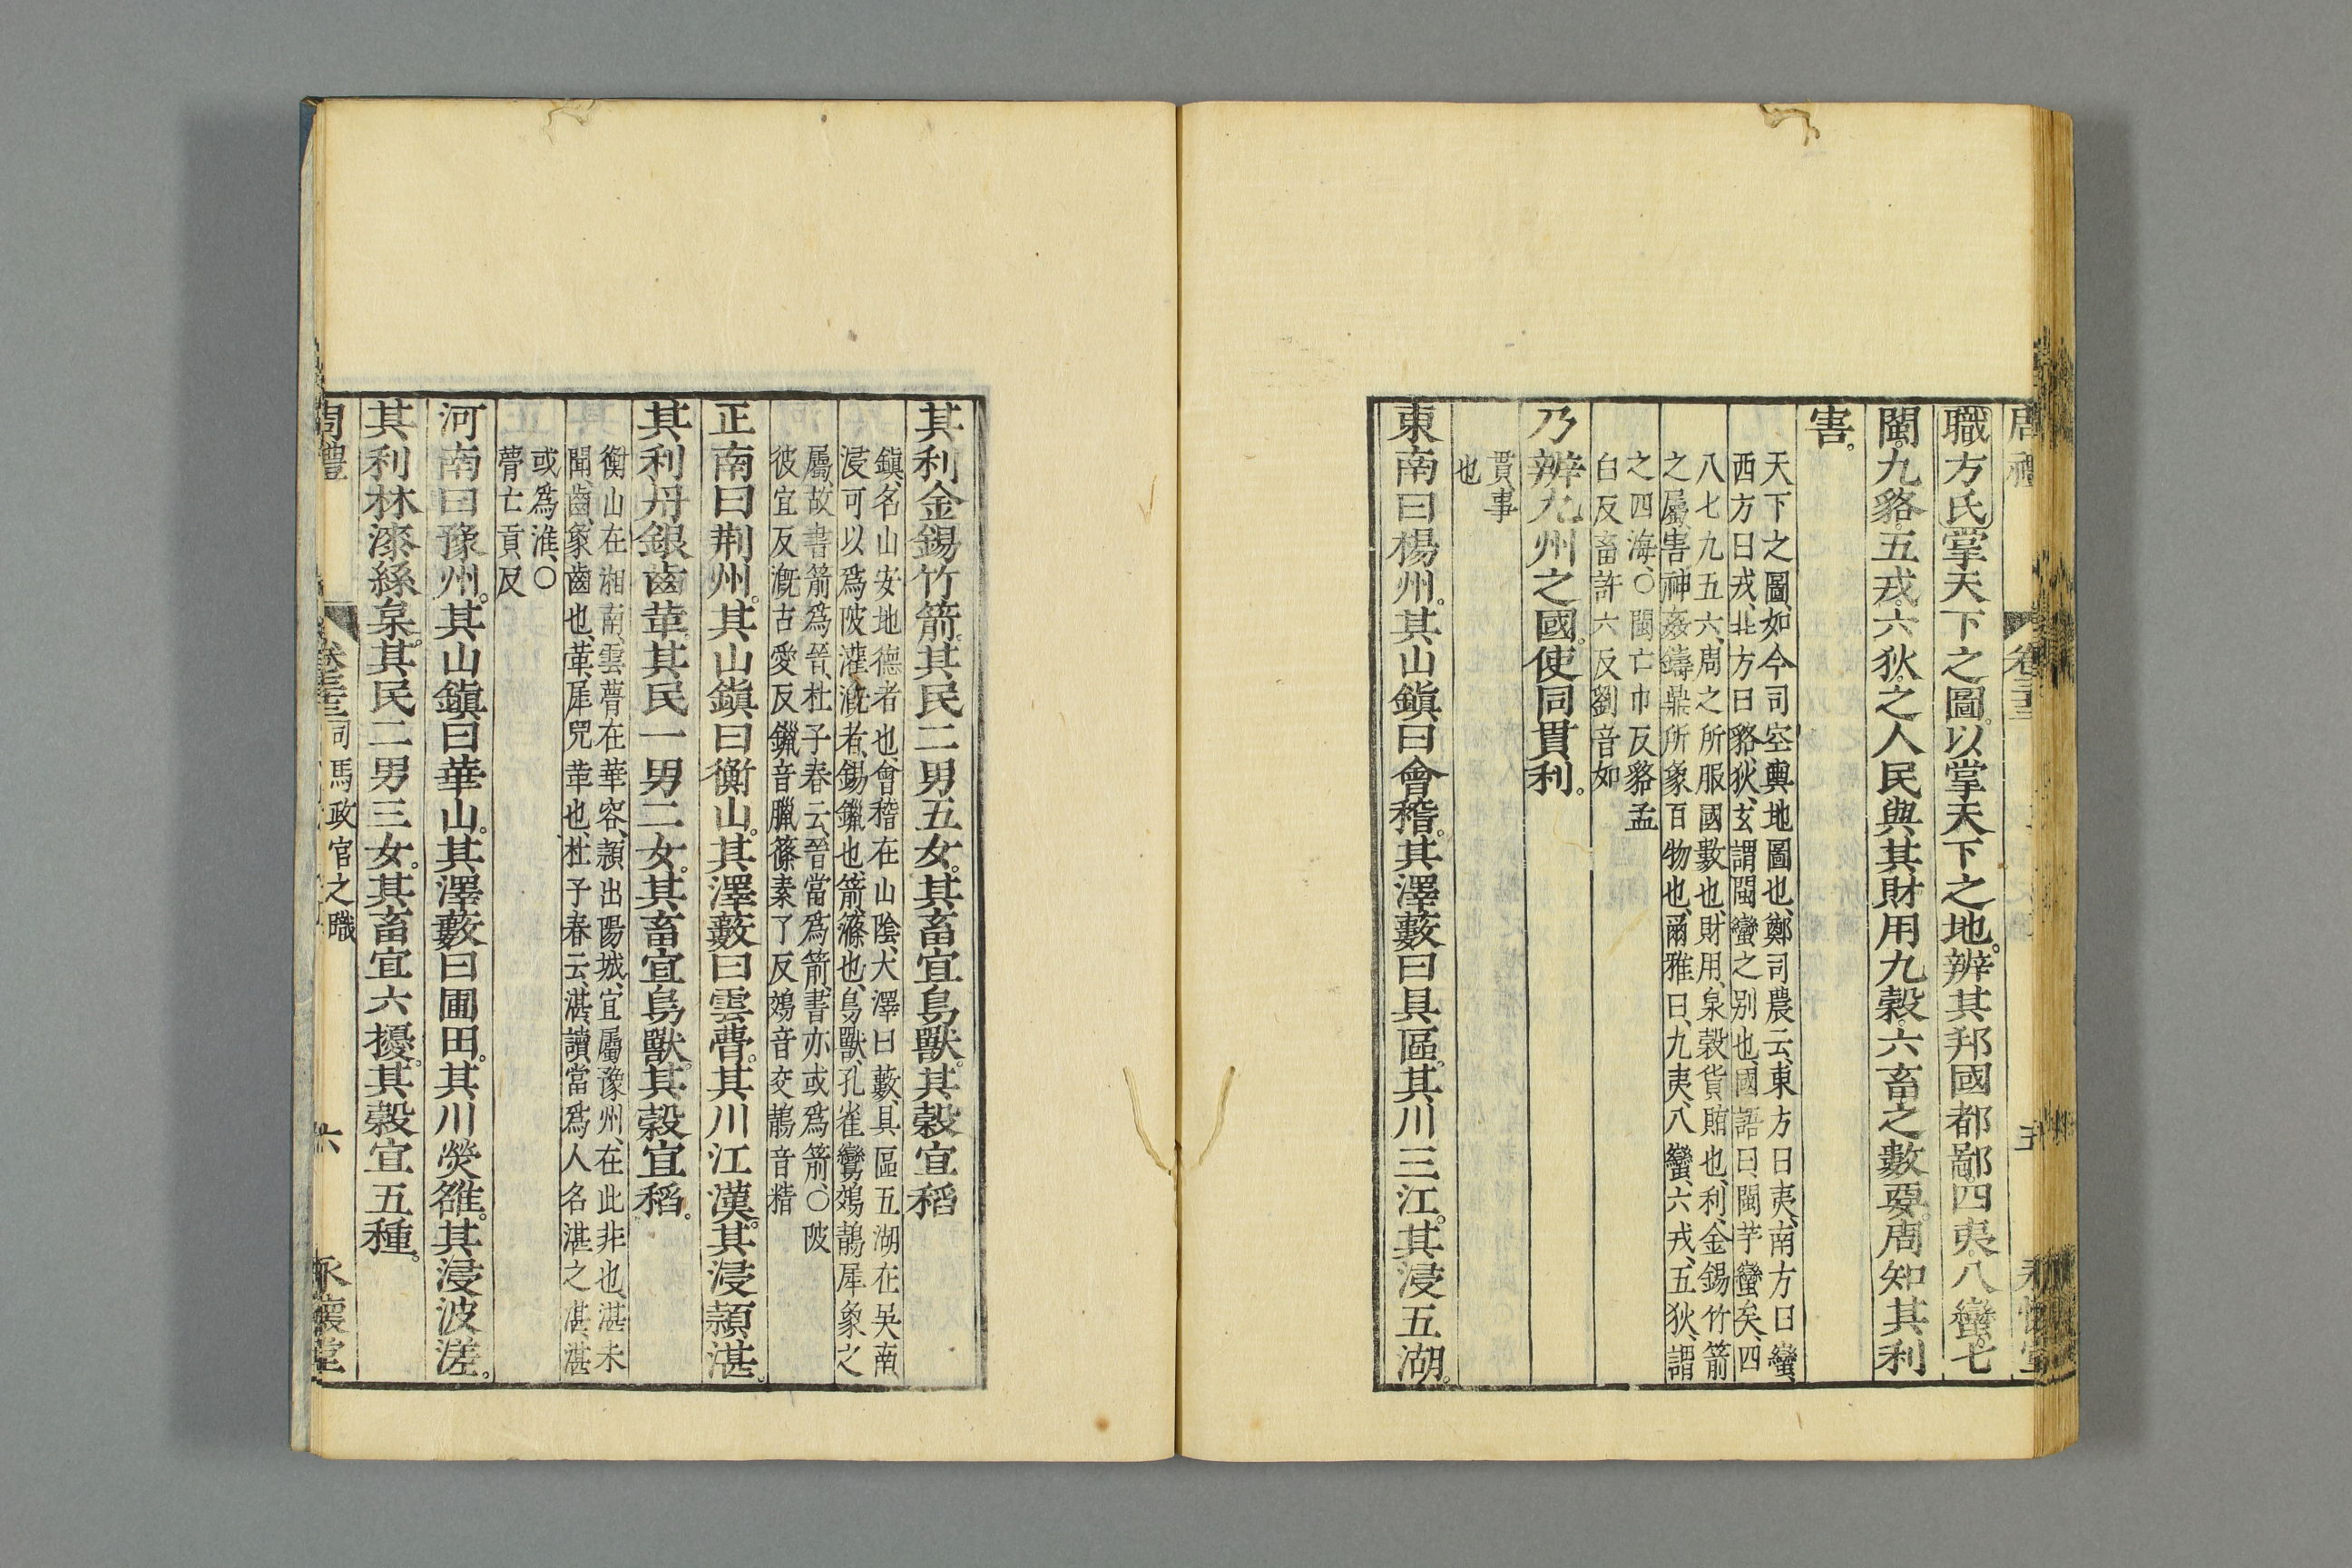 周禮 卷三十三 五 永懷堂
職方氏掌天下之圖。以掌天下之地。辨其邦國都鄙。四夷。八蠻。七
閩。九貉。五戎。六狄。之人民與其財用九穀。六畜之數要。周知其利
害。
天下之圖、如今司空輿地圖也、鄭司農云、東方曰夷、南方曰蠻、
西方曰戎、北方曰貉、狄、玄謂閩蠻之别也、國語曰、閩芊蠻矣、四
八七九五六、周之所服國數也、財用、泉穀貨賄也、利、金錫竹箭
之屬、害、神姦鑄鼎所象百物也、爾雅曰、九夷、八蠻、六戎、五狄、謂
之四海、○閩亡巾反貉孟
白反畜許六反劉音如
乃辨九州之國。使同貫利。
貫、事
也
東南曰楊州。其山鎮曰會稽。其澤藪曰具區。其川三江。其浸五湖。
其利金錫竹箭。其民二男五女。其畜宜鳥獸。其穀宜稻
鎮、名山安地德者也、會稽在山陰、大澤曰藪、具區五湖在吳南、
浸可以爲陂灌漑者、錫鑞也、箭、篠也、鳥獸、孔雀鸞鵁鶄犀象之
屬、故書箭爲晉、杜子春云、晉當爲箭、書亦或爲箭、○陂
彼宜反漑古愛反鑞音臘篠素了反鵁音交鶄音精
正南曰荆州。其山鎮曰衡山。其澤藪曰雲瞢。其川江漢。其浸潁湛。
其利丹銀齒革。其民一男二女。其畜宜鳥獸。其穀宜稻。
衡山在湘南、雲瞢在華容、潁出陽城、宜屬豫州、在此非也、湛未
聞、齒、象齒也、革、犀兕革也、杜子春云、湛、讀當爲人名湛之湛、湛
或爲淮、○
瞢亡貢反
河南曰豫州。其山鎮曰華山。其澤藪曰圃田。其川熒雒。其浸波溠。
其利林漆絲枲。其民二男三女。其畜宜六擾。其穀宜五種。
周禮 卷三十三 司馬政官之職 六 永懷堂